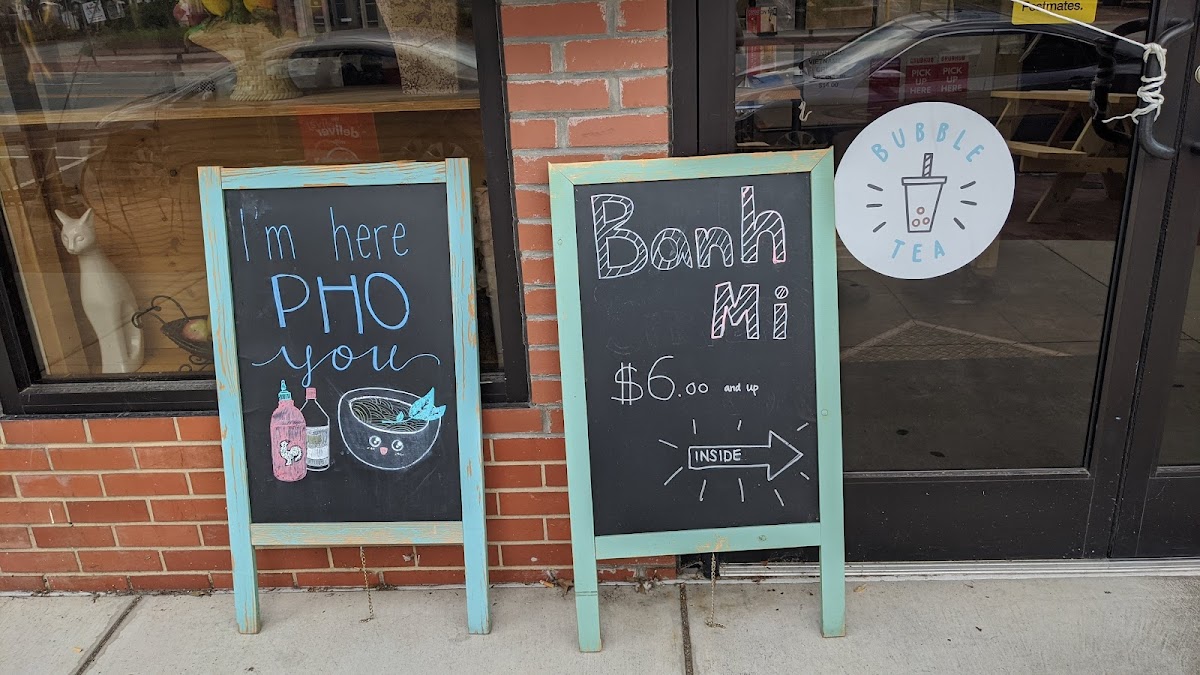 I'm here
PHO
you
Banh
Mi
$6.00 and up
INSIDE
BUBBLE
TEA
Postmates.
PICK UP HERE
PICK UP HERE